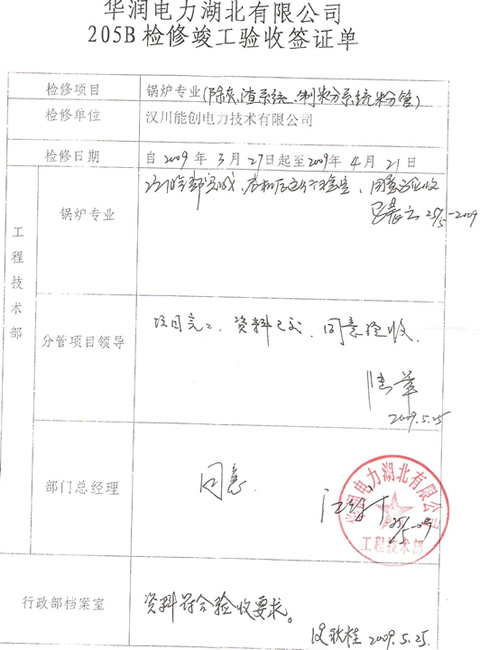 华润电力湖北有限公司
205B检修竣工验收签证单
检修项目
锅炉专业(除灰、渣系统、制粉系统粉管)
检修单位
汉川能创电力技术有限公司
检修日期
自2009年3月27日起至2009年4月21日
工程技术部
锅炉专业
同意验收
25/5-2009
分管项目领导
项目完工、资料已交、同意验收.
2009.5.25
部门总经理
同意.
25/5-09
华润电力湖北有限公司
工程技术部
行政部档案室
资料符合验收要求。
2009.5.25.